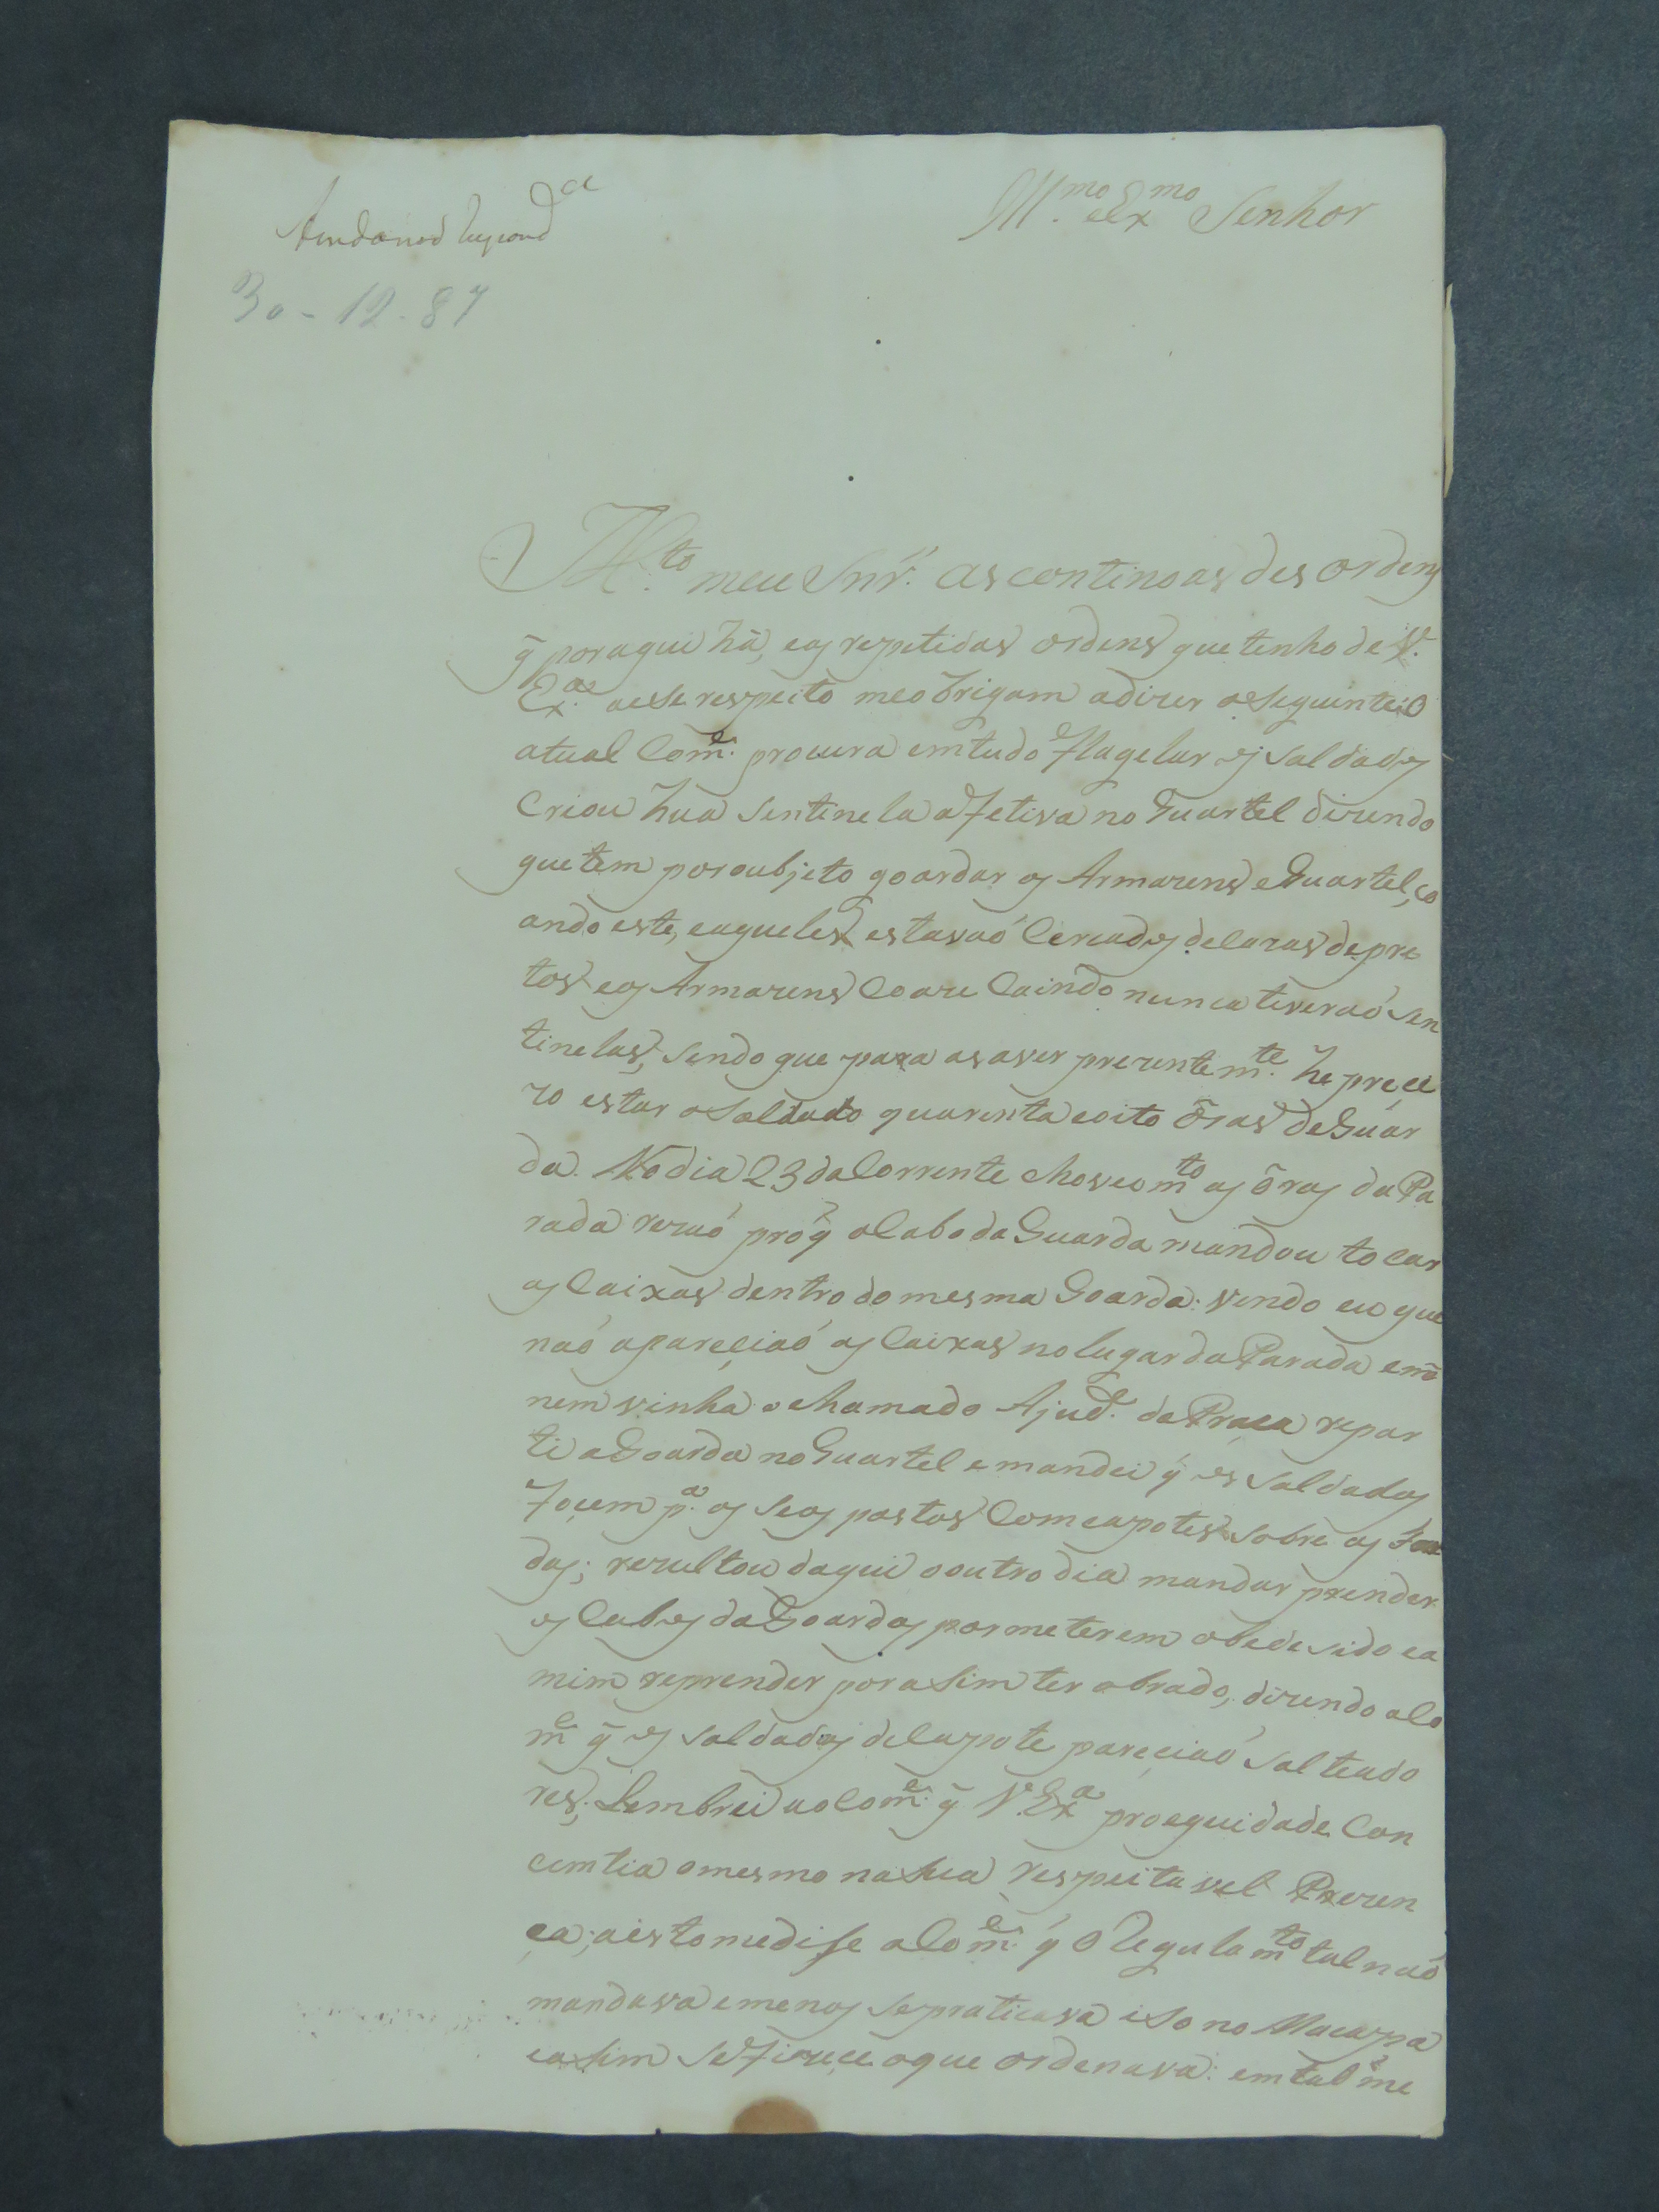 Ill.mo e Ex.mo Senhor
30-12-87
M.to meu Snr. as continoas des ordens
q̃ por aqui hà, e as repetidas ordens que tenho de V.
Ex.a a esse respeito me obrigam a dizer o seguinte: O
atual Com.e procura em tudo flagelar os saldados
Criou hua sentinela afetiva no Quartel dizendo
que tem por oubjeto goardar os Armazens e Quartel, co
ando este, e aqueles estavaó Cercados de cazas de pre
tos e os Armazens Coaze Caindo nunca tiveraó sen
tinelas, sendo que para as aver prezentem.te he preci
zo estar o Saldado quarenta e oito õras de Guar
da. No dia 23 da Corrente choveo m.to as õras da Pa
rada rezaó pro q̃ o Cabo da Guarda mandou tocar
as Caixas dentro do mesma Goarda: vendo eu que
naó apareçiaó as Caixas no lugar da Parada e
nem vinha o chamado Ajud.e da Praça repar
ti a Goarda no Quartel e mandei q̃ os Saldados
foçem p.a os seos postos Com capotes sobre as
das; rezultou daqui o outro dia mandar prender
os Cabos da Goardas por me terem obedesido e a
mim reprender por asim ter obrado, dizendo o Co
m.e q̃ os saldados de Capote pareciaó Salteado
res, Lembrei ao Com.e q̃ V. Ex.a pro equidade Con
cemtia o mesmo na sua respeitavel Prezen
ça; a isto me dise o Com.e q̃ o Regulam.to tal naó
mandava e menos se praticava iso no Macapá
e asim se fizece o que ordenava: em tal me